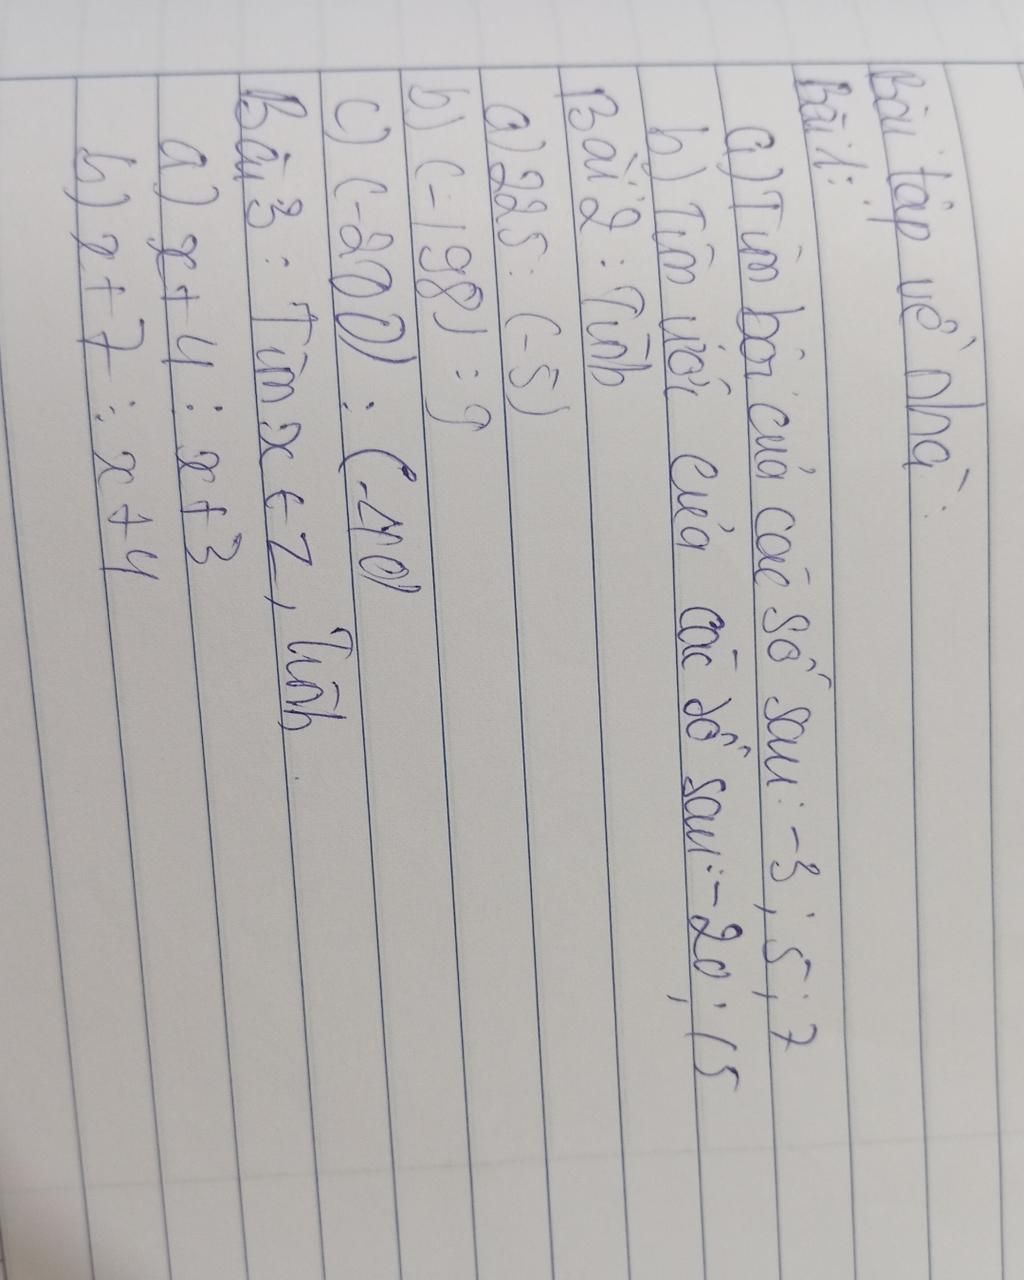 Bài tập về nhà:
Bài 1:
a) Tìm bội của các số sau: -3; 5; 7
b) Tìm ước của các số sau: -20; 15
Bài 2: Tính
a) 225: (-5)
b) (-198) : 9
c) (-200) : (-40)
Bài 3: Tìm x ∈ Z, Tính
a) x + 4 ⋮ x + 3
b) x + 7 ⋮ x + 4